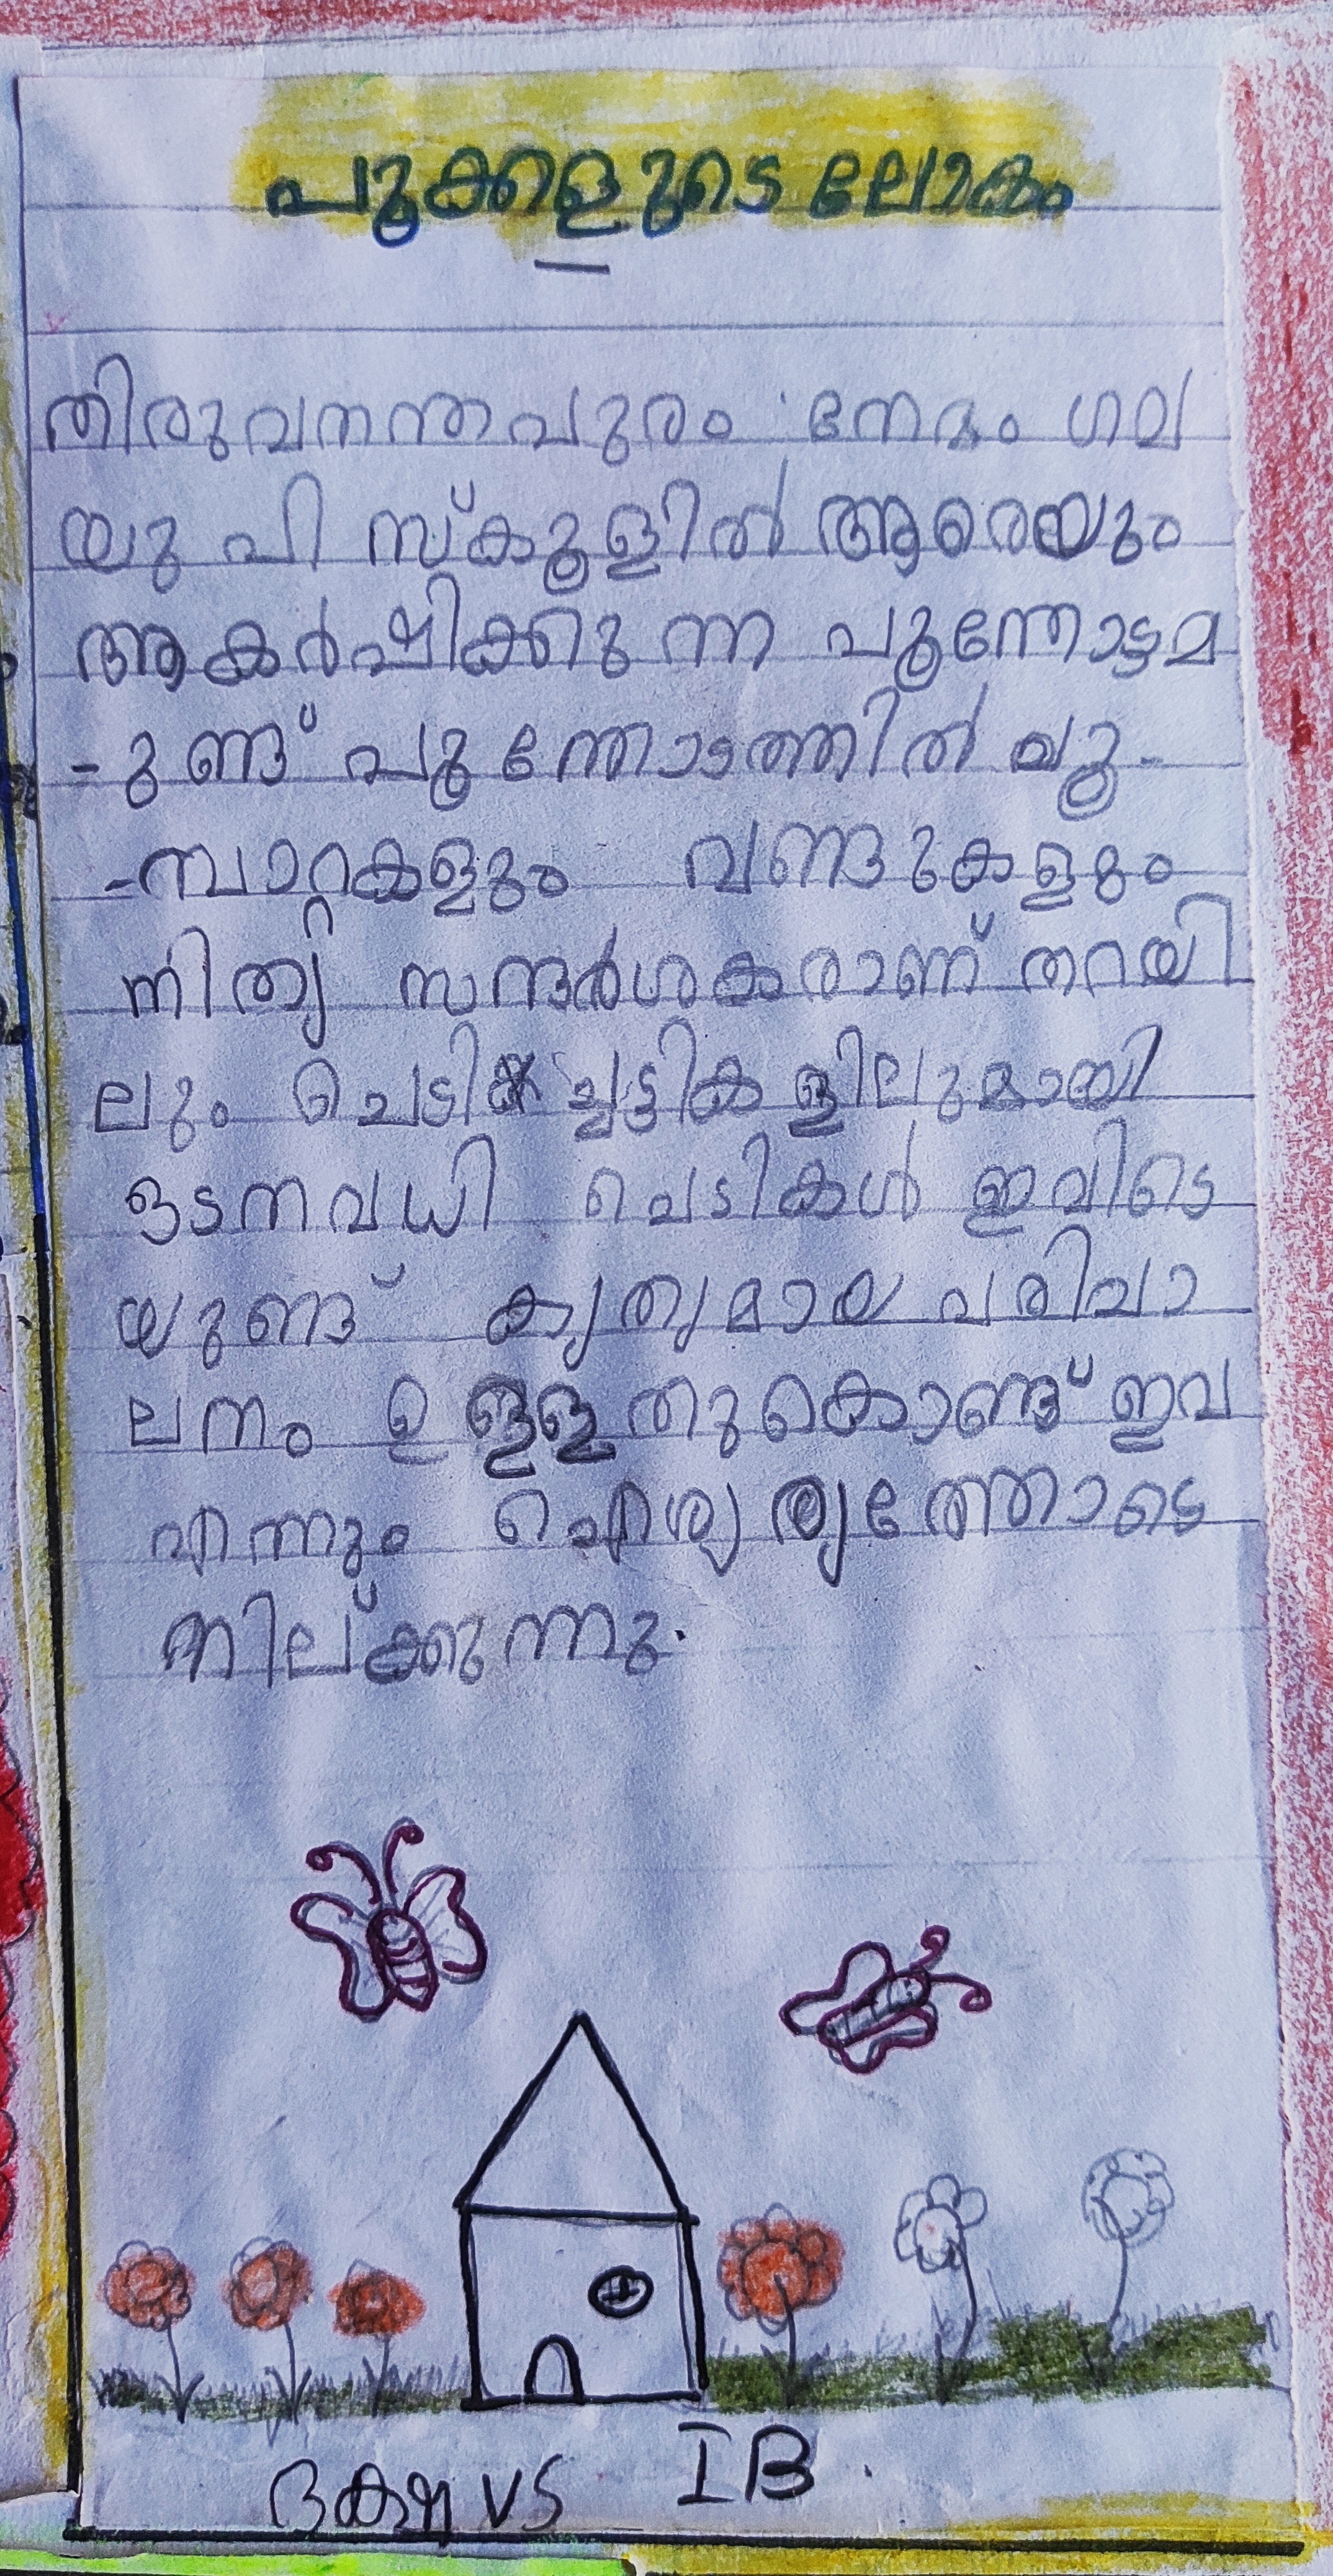 പൂക്കളുടെ ലോകം
തിരുവനന്തപുരം നേമം ഗവ
യു പി സ്കൂളിൽ ആരെയും
ആകർഷിക്കുന്ന പൂന്തോട്ടമ
-ുണ്ട് പൂന്തോട്ടത്തിൽ പൂ-
-മ്പാറ്റകളും വണ്ടുകളും
നിത്യ സന്ദർശകരാണ് തറയി
ലും ചെടിച്ചട്ടികളിലുമായി
ഒടനവധി ചെടികൾ ഇവിടെ
യുണ്ട് കൃത്യമായ പരിപാ
ലനം ഉള്ളതുകൊണ്ട് ഇവ
എന്നും ഐശ്വര്യത്തോടെ
നില്ക്കുന്നു.
VS IB.